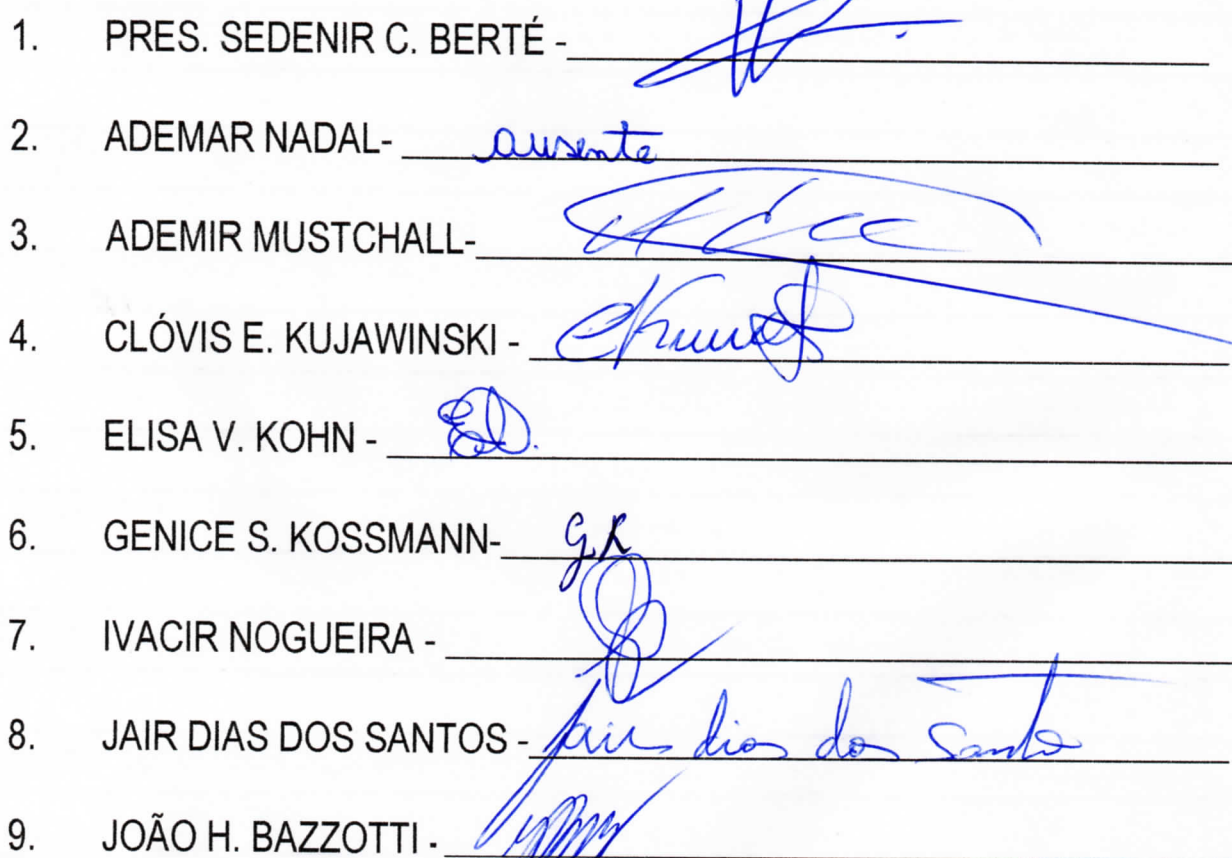 1. PRES. SEDENIR C. BERTÉ -
2. ADEMAR NADAL- ausente
3. ADEMIR MUSTCHALL-
4. CLÓVIS E. KUJAWINSKI -
5. ELISA V. KOHN -
6. GENICE S. KOSSMANN- G.K
7. IVACIR NOGUEIRA -
8. JAIR DIAS DOS SANTOS - Jair dias dos Santos
9. JOÃO H. BAZZOTTI -